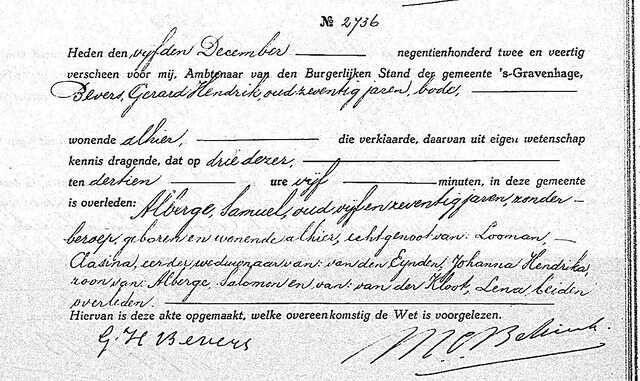 № 2736
Heden den vijfden December negentienhonderd twee en veertig
verscheen voor mij, Ambtenaar van den Burgerlijken Stand der gemeente 's-Gravenhage,
Bevers, Gerard Hendrik, oud zeventig jaren, bode,
wonende alhier, die verklaarde, daarvan uit eigen wetenschap
kennis dragende, dat op drie dezer,
ten dertien ure vijf minuten, in deze gemeente
is overleden: Alberge, Samuel, oud vijf en zeventig jaren, zonder
beroep, geboren en wonende alhier, echtgenoot van: Looman,
Clasina, eerder weduwnaar van: van den Eynden, Johanna Hendrika,
zoon van: Alberge, Salomon en van: van der Kloot, Lena, beiden
overleden.
Hiervan is deze akte opgemaakt, welke overeenkomstig de Wet is voorgelezen.
G. H Bevers